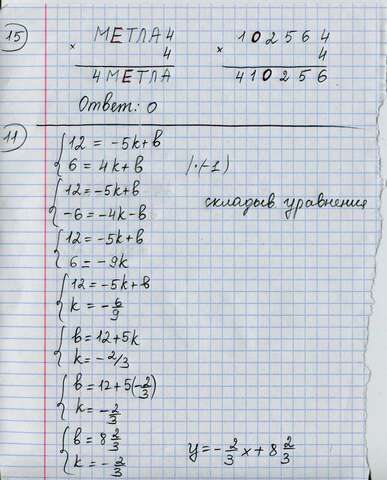 15) МЕТЛА4 102564
× 4 × 4
4МЕТЛА 410256
Ответ: 0
11) { 12 = -5k+b
6 = 4k+b |·(-1)
{ 12 = -5k+b
-6 = -4k-b складыв. уравнения
{ 12 = -5k+b
6 = -9k
{ 12 = -5k+b
k = -6/9
{ b = 12+5k
k = -2/3
{ b = 12+5(-2/3)
k = -2/3
{ b = 8 2/3
k = -2/3 y = -2/3 x + 8 2/3